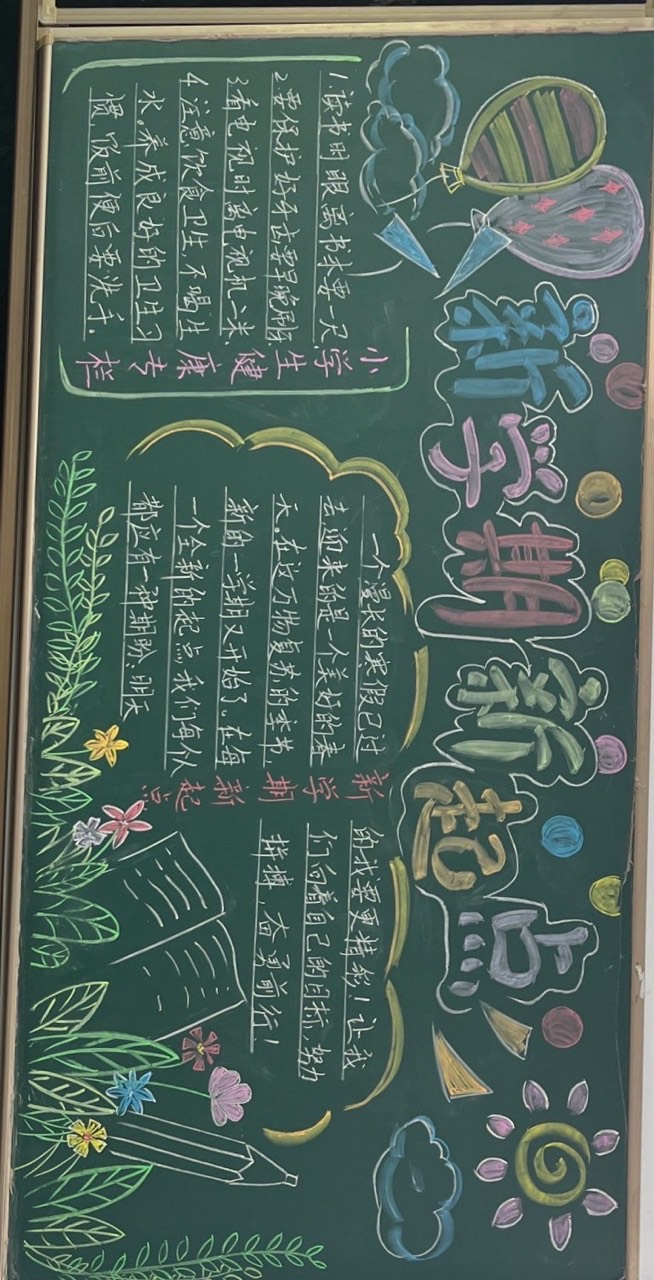 新学期新起点
1.读书时眼离书本要一尺
2.要保护好牙齿要早晚刷牙
3.看电视时离电视机一米
4.注意饮食卫生,不喝生
水。养成良好的卫生习
惯,饭前便后要洗手。
小学生健康专栏
一个漫长的寒假已过
去,迎来的是一个美好的春
天。在这万物复苏的季节,
新的一学期又开始了。在每
一个全新的起点,我们每个人
都应有一种期盼:明天
新学期新起点
的我要更精彩!让我
们向着自己的目标,努力
拼搏,奋勇前行!